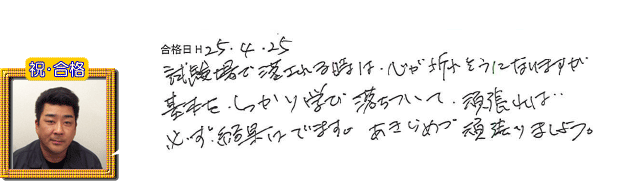 祝・合格
合格日 H 25.4.25
試験場で落とされる時は、心が折れそうになりますが
基本を、しっかり学び落ちついて、頑張れば…
必ず結果はでます。あきらめづ頑張りましょう。